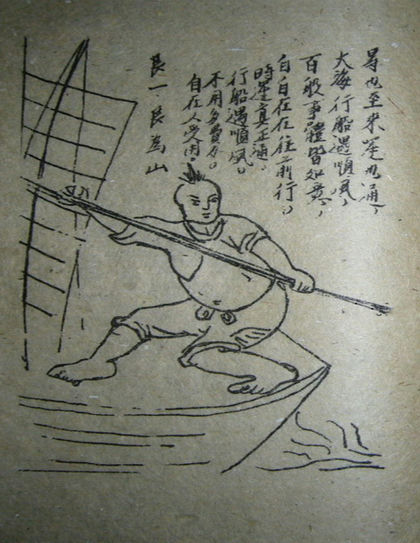 也至來運也通，
大海行船遇順風，
百般事體皆如意，
自自在在往前行。
時運真正通。
行船遇順風。
不用多費力。
自在人受用。
艮一艮為山